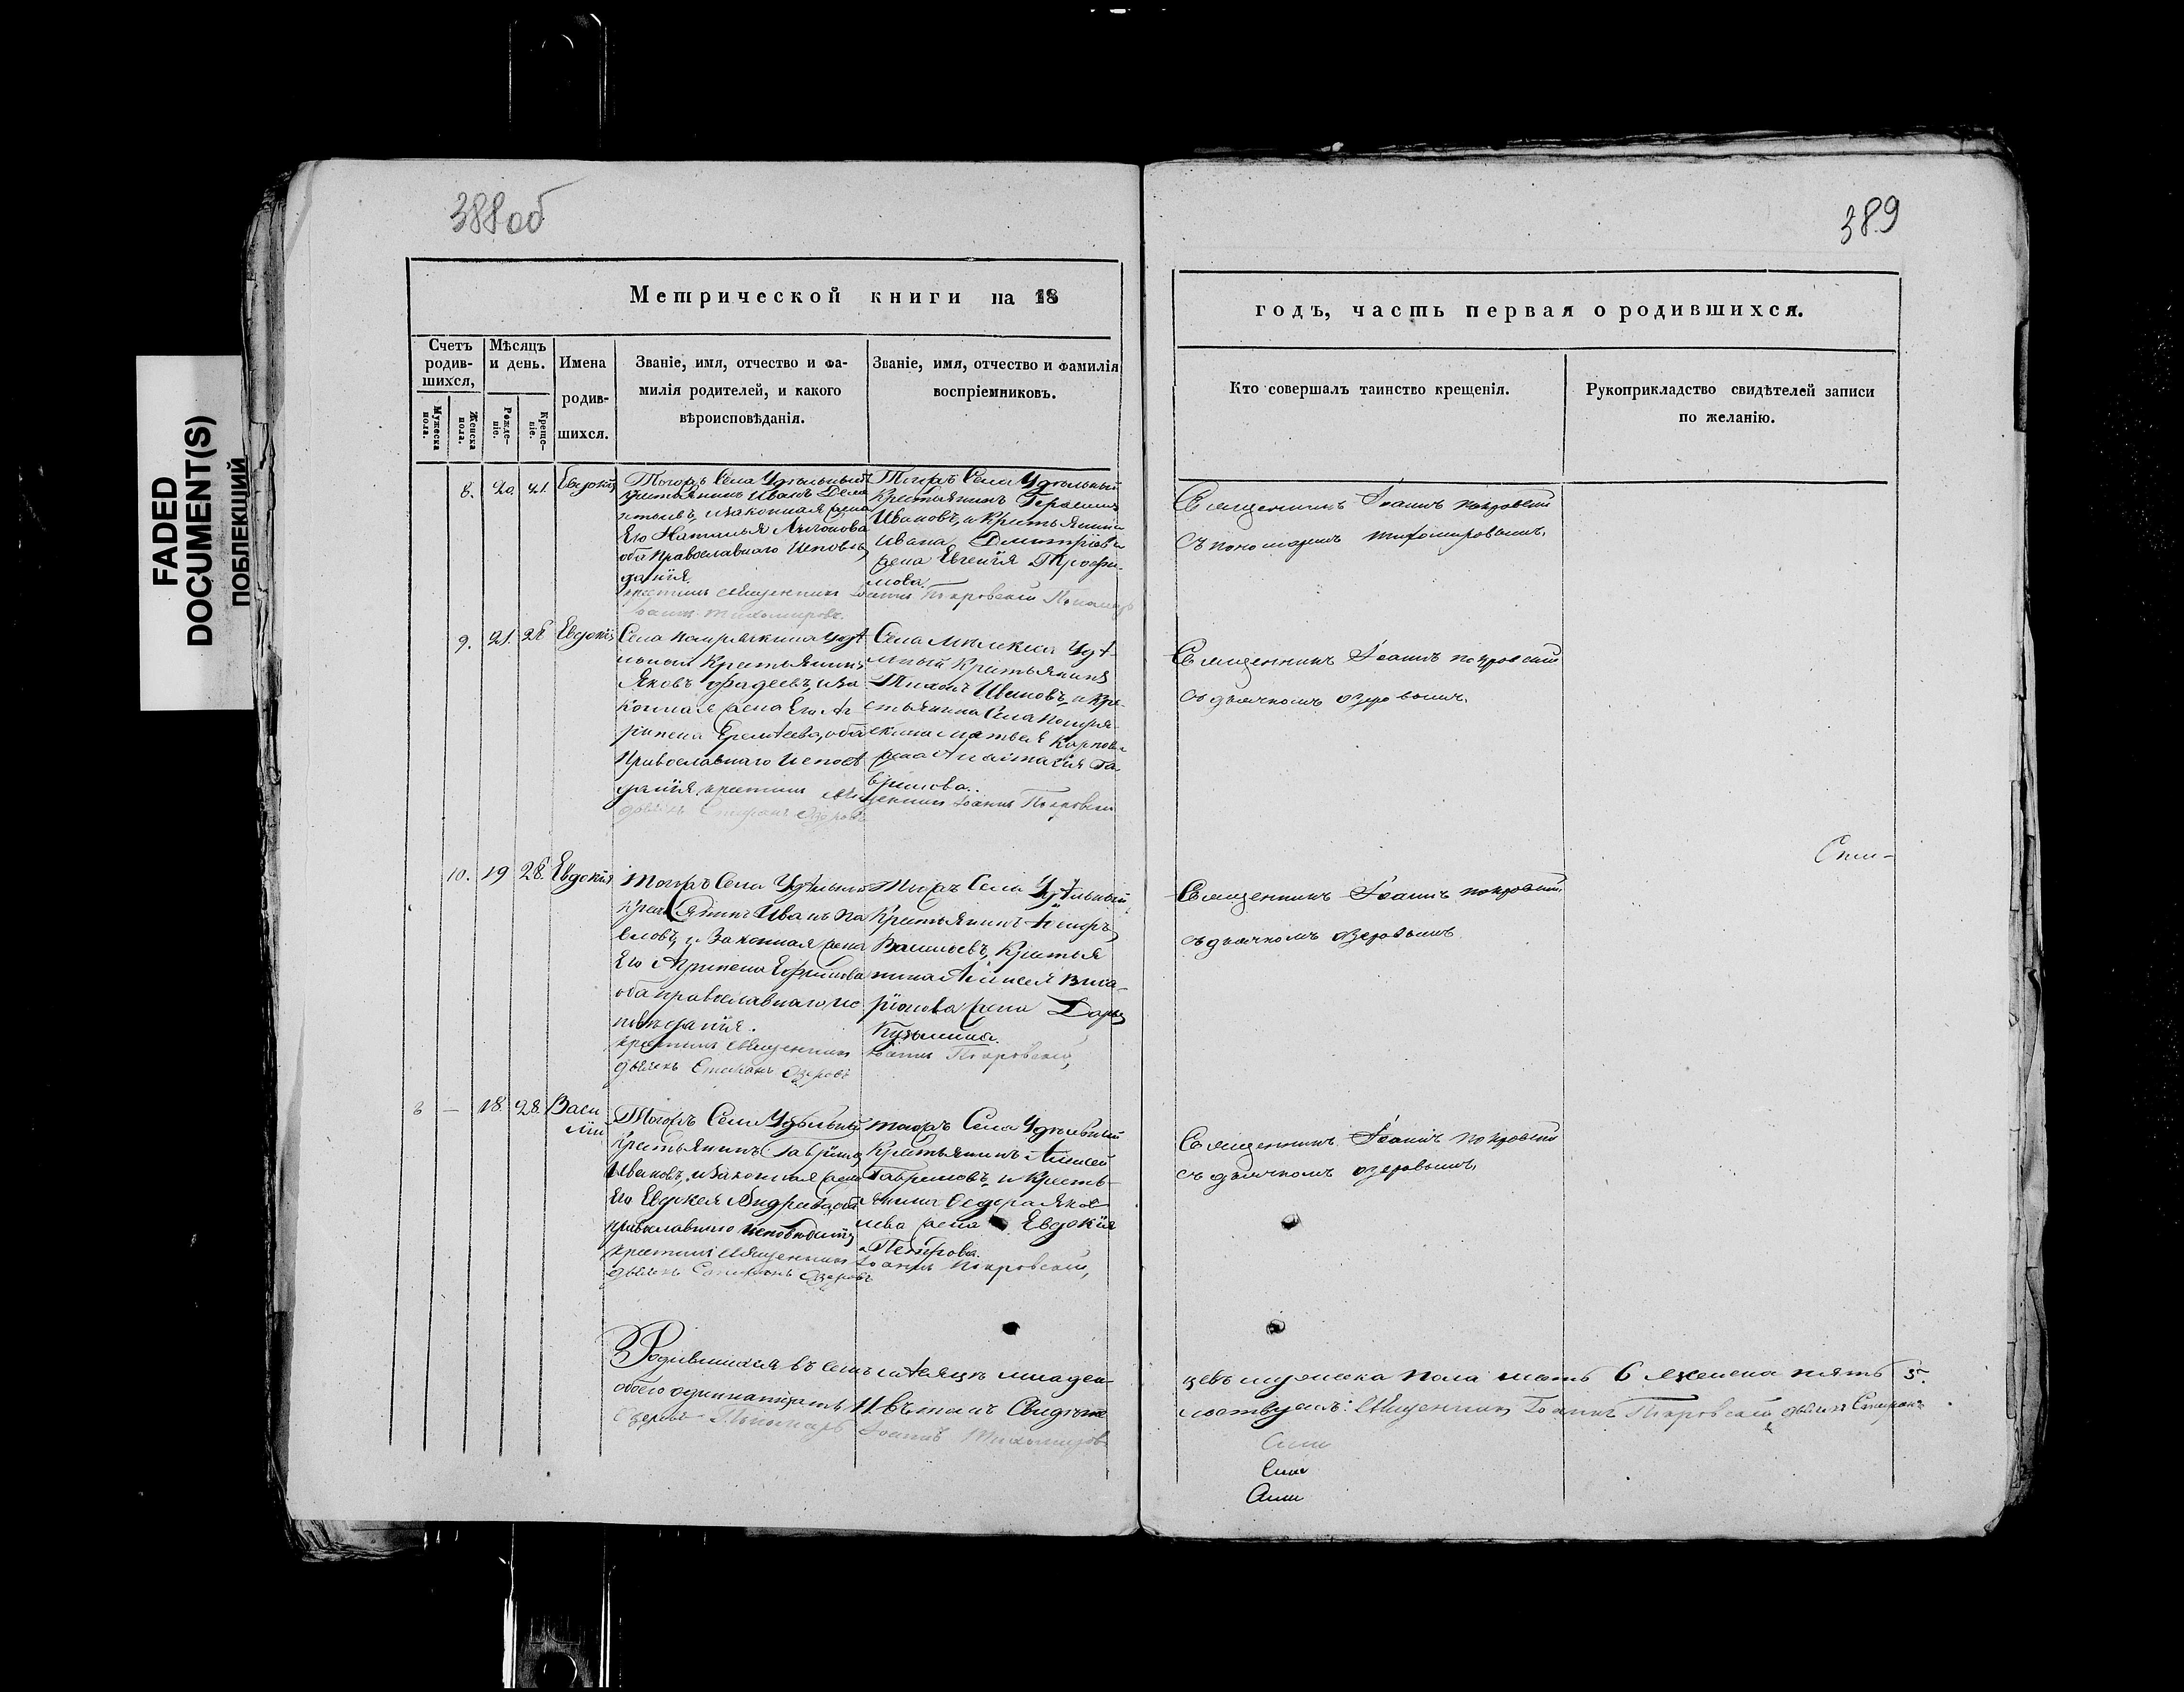 FADED
DOCUMENT(S)
ПОБЛЕКШИЙ
388 об
389
Метрической книги на 18
годъ, часть первая о родившихся.
Счетъ родив-шихся,
Мужеска пола.
Женска пола.
Мѣсяцъ и день.
Рожде-ніе.
Креще-ніе.
Имена родив-шихся.
Званіе, имя, отчество и фа-
милія родителей, и какого
вѣроисповѣданія.
Званіе, имя, отчество и фамилія
воспріемниковъ.
Кто совершалъ таинство крещенія.
Рукоприкладство свидѣтелей записи
по желанію.
8. 20. 21. Евдокія
Тогожъ Села Удѣльный
крестьянинъ Иванъ
и законная жена
Его Наталья Антонова
оба православнаго исповѣ
данія.
крестилъ священникъ Іоаннъ Покровский Пономарь
Іоаннъ Тихомировъ.
Тогожъ Села Удѣльный
Крестьянинъ Герасимъ
Ивановъ, и крестьянина
Ивана Дмитріева
жена Евгенія Трофи-
мова.
Священникъ Іоаннъ покровский
съ пономаремъ тихомировымъ.
9. 21. 28. Евдокія
Села
Крестьянинъ
Яковъ Фадеевъ, и за
конная жена Его Аг
рипена Еремѣева, оба
православнаго исповѣ
данія. крестилъ священникъ Іоаннъ Покровский
дьячекъ Стефанъ Озеровъ
Села Удѣ-
льный Крестьянинъ
Ивановъ, и кре-
стьянина Села
Карпова
жена Анастасія Га-
врилова.
Священникъ Іоаннъ покровский
съ дьячкомъ озеровымъ.
Сми-
10. 19 28. Евдокія
Тогожъ Села Удѣльный
крестьянинъ Иванъ Па
вловъ, и законная жена
Его Агрипена Ефимова
оба православнаго ис
повѣданія.
крестилъ священникъ Іоаннъ Покровский,
дьячекъ Стефанъ Озеровъ
Тогожъ Села Удѣльный
Крестьянинъ
Васильевъ, Крестья
нина Алексея
ріонова жена Дарья
Кузьмина.
Священникъ Іоаннъ покровский
съ дьячкомъ озеровымъ
6 — 18. 28. Васи
лій
Тогожъ Села Удѣльный
крестьянинъ Гаврила
Ивановъ, и законная жена
Его Евдокея Андреева, оба
православнаго исповѣданія
крестилъ священникъ Іоаннъ Покровский,
дьячекъ Стефанъ Озеровъ
тогожъ Села Удѣльный
Крестьянинъ Алексей
Гавриловъ, и кресть-
янина Федора Яков
лева жена Евдокія
Петрова.
Священникъ Іоаннъ покровский
съ дьячкомъ озеровымъ.
Родившихся въ семъ мѣсяцѣ младен-
цевъ мужска пола шесть 6 женска пять 5.
обоего одиннатцать 11. въ томъ свидѣте
льствуемъ: Священникъ Іоаннъ Покровский, дьячекъ Стефанъ
Озеровъ Пономарь Іоаннъ Тихомировъ